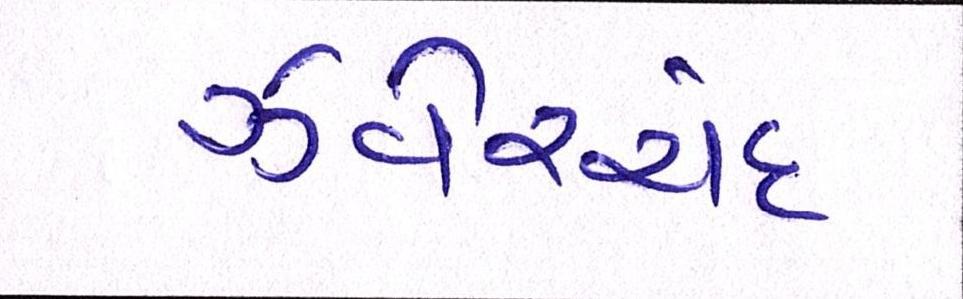 ઝવેરચંદ